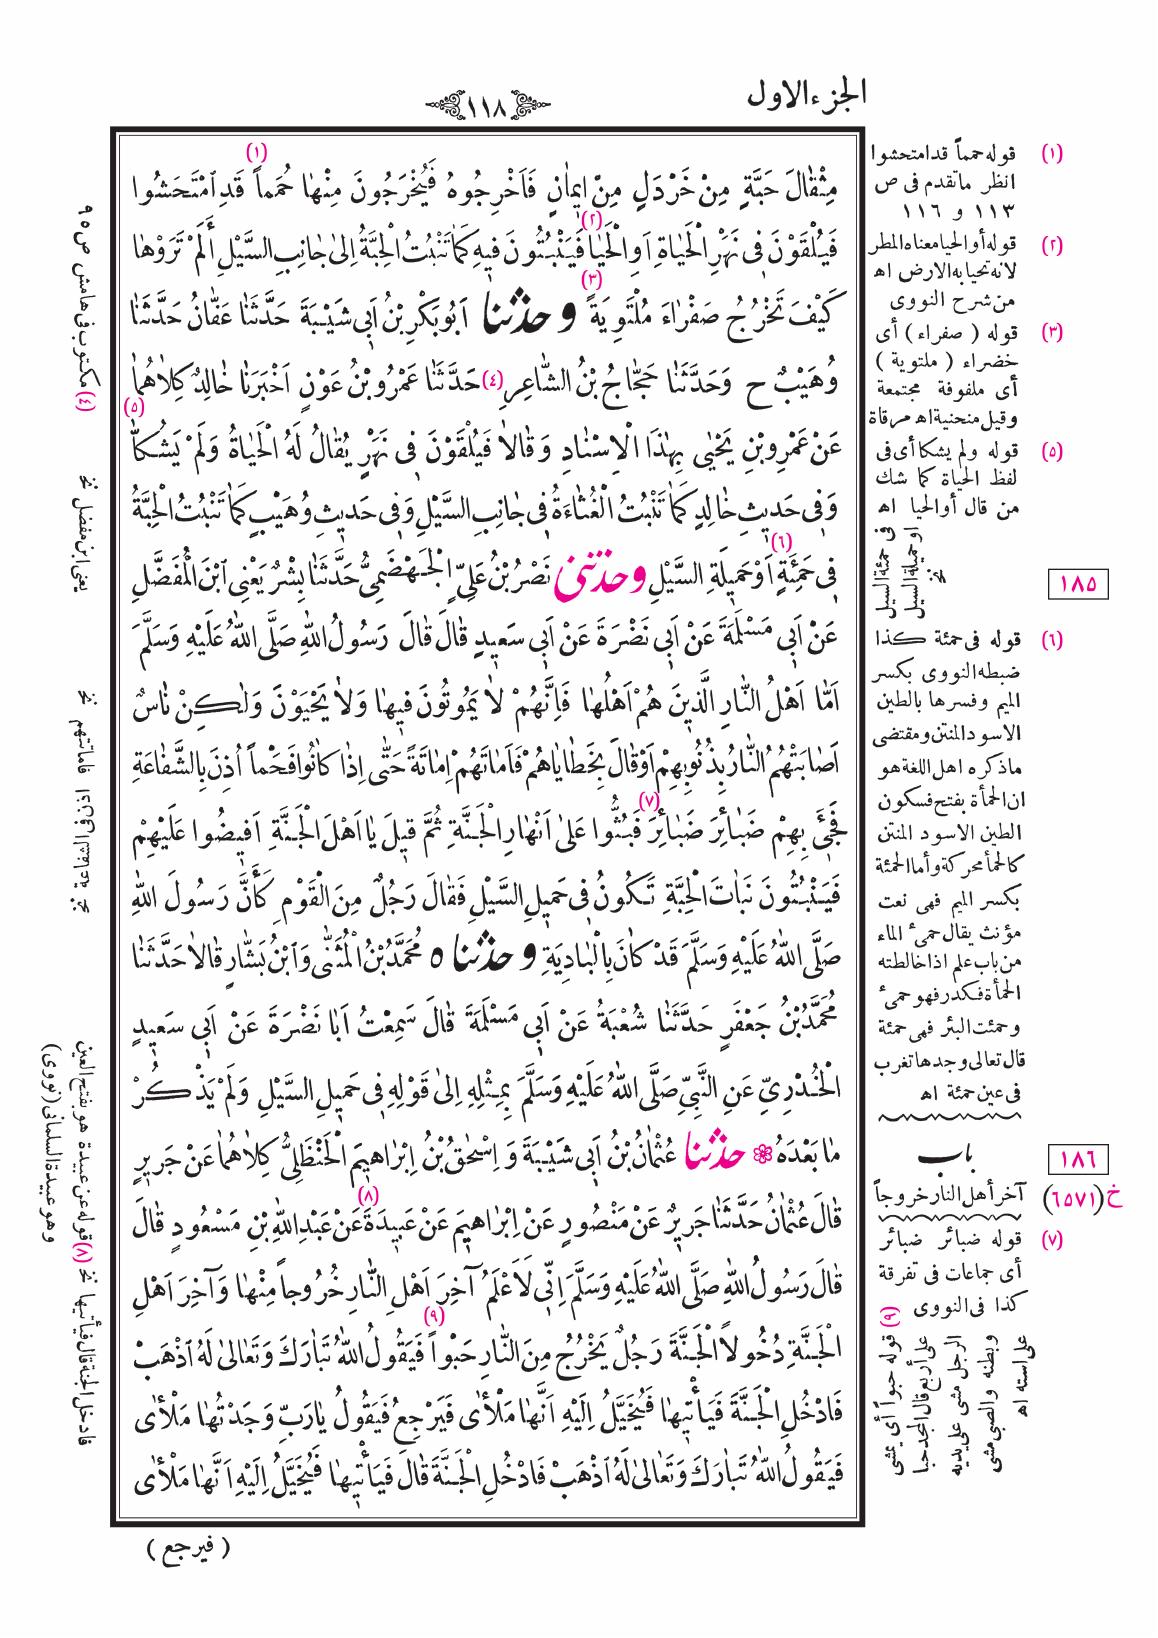 الجزء الاول
١١٨
(١)
مِثْقٰالَ حَبَّةٍ مِنْ خَرْدَلٍ مِنْ ايمٰانٍ فَاَخْرِجُوهُ فَيُخْرَجُونَ مِنْهٰا حُمَماً قَدِ امْتَحَشُوا
(٢)
فَيُلْقَوْنَ فى نَهَرِ الْحَيٰاةِ اَوِ الْحَيٰا فَيَنْبُتُونَ فيهِ كَمٰا تَنْبُتُ الْحِبَّةُ اِلىٰ جٰانِبِ السَّيْلِ اَلَمْ تَرَوْهٰا
(٣)
كَيْفَ تَخْرُجُ صَفْرٰاءَ مُلْتَوِيَةً وحدثنا اَبُو بَكْرِ بْنُ اَبى شَيْبَةَ حَدَّثَنٰا عَفّٰانُ حَدَّثَنٰا
وُهَيْبٌ ح وَحَدَّثَنٰا حَجّٰاجُ بْنُ الشّٰاعِرِ (٤) حَدَّثَنٰا عَمْرُو بْنُ عَوْنٍ اَخْبَرَنٰا خٰالِدٌ كِلاٰهُمٰا
(٥)
عَنْ عَمْرِو بْنِ يَحْيٰى بِهٰذَا الْاِسْنٰادِ وَقٰالاٰ فَيُلْقَوْنَ فى نَهَرٍ يُقٰالُ لَهُ الْحَيٰاةُ وَلَمْ يَشُكّٰا
وَفى حَديثِ خٰالِدٍ كَمٰا تَنْبُتُ الْغُثٰاءَةُ فى جٰانِبِ السَّيْلِ وَفى حَديثِ وُهَيْبٍ كَمٰا تَنْبُتُ الْحِبَّةُ
(٦)
فى حَمِئَةٍ اَوْ حَميلَةِ السَّيْلِ وحدثنى نَصْرُ بْنُ عَلِىٍّ الْجَهْضَمِىُّ حَدَّثَنٰا بِشْرٌ يَعْنِى ابْنَ الْمُفَضَّلِ
عَنْ اَبى مَسْلَمَةَ عَنْ اَبى نَضْرَةَ عَنْ اَبى سَعيدٍ قٰالَ قٰالَ رَسُولُ اللهِ صَلَّى اللهُ عَلَيْهِ وَسَلَّمَ
اَمّٰا اَهْلُ النّٰارِ الَّذينَ هُمْ اَهْلُهٰا فَاِنَّهُمْ لاٰ يَمُوتُونَ فيهٰا وَلاٰ يَحْيَوْنَ وَلٰكِنْ نٰاسٌ
اَصٰابَتْهُمُ النّٰارُ بِذُنُوبِهِمْ اَوْ قٰالَ بِخَطٰايٰاهُمْ فَاَمٰاتَهُمْ اِمٰاتَةً حَتّٰى اِذٰا كٰانُوا فَحْماً اُذِنَ بِالشَّفٰاعَةِ
(٧)
فَجِىءَ بِهِمْ ضَبٰائِرَ ضَبٰائِرَ فَبُثُّوا عَلىٰ اَنْهٰارِ الْجَنَّةِ ثُمَّ قيلَ يٰا اَهْلَ الْجَنَّةِ اَفيضُوا عَلَيْهِمْ
فَيَنْبُتُونَ نَبٰاتَ الْحِبَّةِ تَكُونُ فى حَميلِ السَّيْلِ فَقٰالَ رَجُلٌ مِنَ الْقَوْمِ كَأَنَّ رَسُولَ اللهِ
صَلَّى اللهُ عَلَيْهِ وَسَلَّمَ قَدْ كٰانَ بِالْبٰادِيَةِ وحدثنا ه مُحَمَّدُ بْنُ الْمُثَنّٰى وَابْنُ بَشّٰارٍ قٰالاٰ حَدَّثَنٰا
مُحَمَّدُ بْنُ جَعْفَرٍ حَدَّثَنٰا شُعْبَةُ عَنْ اَبى مَسْلَمَةَ قٰالَ سَمِعْتُ اَبٰا نَضْرَةَ عَنْ اَبى سَعيدٍ
الْخُدْرِىِّ عَنِ النَّبِىِّ صَلَّى اللهُ عَلَيْهِ وَسَلَّمَ بِمِثْلِهِ اِلىٰ قَوْلِهِ فى حَميلِ السَّيْلِ وَلَمْ يَذْكُرْ
مٰا بَعْدَهُ ❁ حدثنا عُثْمٰانُ بْنُ اَبى شَيْبَةَ وَ اِسْحٰقُ بْنُ اِبْرٰاهيمَ الْحَنْظَلِىُّ كِلاٰهُمٰا عَنْ جَريرٍ
(٨)
قٰالَ عُثْمٰانُ حَدَّثَنٰا جَريرٌ عَنْ مَنْصُورٍ عَنْ اِبْرٰاهيمَ عَنْ عَبيدَةَ عَنْ عَبْدِ اللهِ بْنِ مَسْعُودٍ قٰالَ
قٰالَ رَسُولُ اللهِ صَلَّى اللهُ عَلَيْهِ وَسَلَّمَ اِنّى لَاَعْلَمُ آخِرَ اَهْلِ النّٰارِ خُرُوجاً مِنْهٰا وَآخِرَ اَهْلِ
(٩)
الْجَنَّةِ دُخُولاً الْجَنَّةَ رَجُلٌ يَخْرُجُ مِنَ النّٰارِ حَبْواً فَيَقُولُ اللهُ تَبٰارَكَ وَتَعٰالىٰ لَهُ اذْهَبْ
فَادْخُلِ الْجَنَّةَ فَيَأْتيهٰا فَيُخَيَّلُ اِلَيْهِ اَنَّهٰا مَلْأىٰ فَيَرْجِعُ فَيَقُولُ يٰارَبِّ وَجَدْتُهٰا مَلْأىٰ
فَيَقُولُ اللهُ تَبٰارَكَ وَتَعٰالىٰ لَهُ اذْهَبْ فَادْخُلِ الْجَنَّةَ قٰالَ فَيَأْتيهٰا فَيُخَيَّلُ اِلَيْهِ اَنَّهٰا مَلْأىٰ
( فيرجع )
(١) قوله حمماً قد امتحشوا
انظر ماتقدم فى ص
١١٣ و ١١٦
(٢) قوله أو الحيا معناه المطر
لانه تحيا به الارض اه
من شرح النووى
(٣) قوله ( صفراء ) أى
خضراء ( ملتوية )
أى ملفوفة مجتمعة
وقيل منحنية اه مرقاة
(٥) قوله ولم يشكا أى فى
لفظ الحياة كما شك
من قال أو الحيا اه
فى حمئة السيل
او حميلة السيل
نخ
١٨٥
(٦) قوله فى حمئة كذا
ضبطه النووى بكسر
الميم وفسرها بالطين
الاسود المنتن ومقتضى
ماذكره اهل اللغة هو
ان الحمأة بفتح فسكون
الطين الاسود المنتن
كالحمأ محركة وأما الحمئة
بكسر الميم فهى نعت
مؤنث يقال حمىء الماء
من باب علم اذا خالطته
الحمأة فكدر فهو حمىء
وحمئت البئر فهى حمئة
قال تعالى وجدها تغرب
فى عين حمئة اه
١٨٦
باب
آخر أهل النار خروجاً
خ (٦٥٧١)
(٧) قوله ضبائر ضبائر
أى جماعات فى تفرقة
كذا فى النووى
(٩) قوله حبواً أى يمشى
على أربع قال المجد حبا
الرجل مشى على يديه
وبطنه والصبى مشى
على استه اه
(٤) مكتوب فى هامش ص ٩٥
يعنى ابن مفضل نخ
فاماتتهم نخ
(٨) قوله عن عبيدة هو بفتح العين
وهو عبيدة السلمانى (نووى)
فادخل الجنة قال فيأتيها نخ